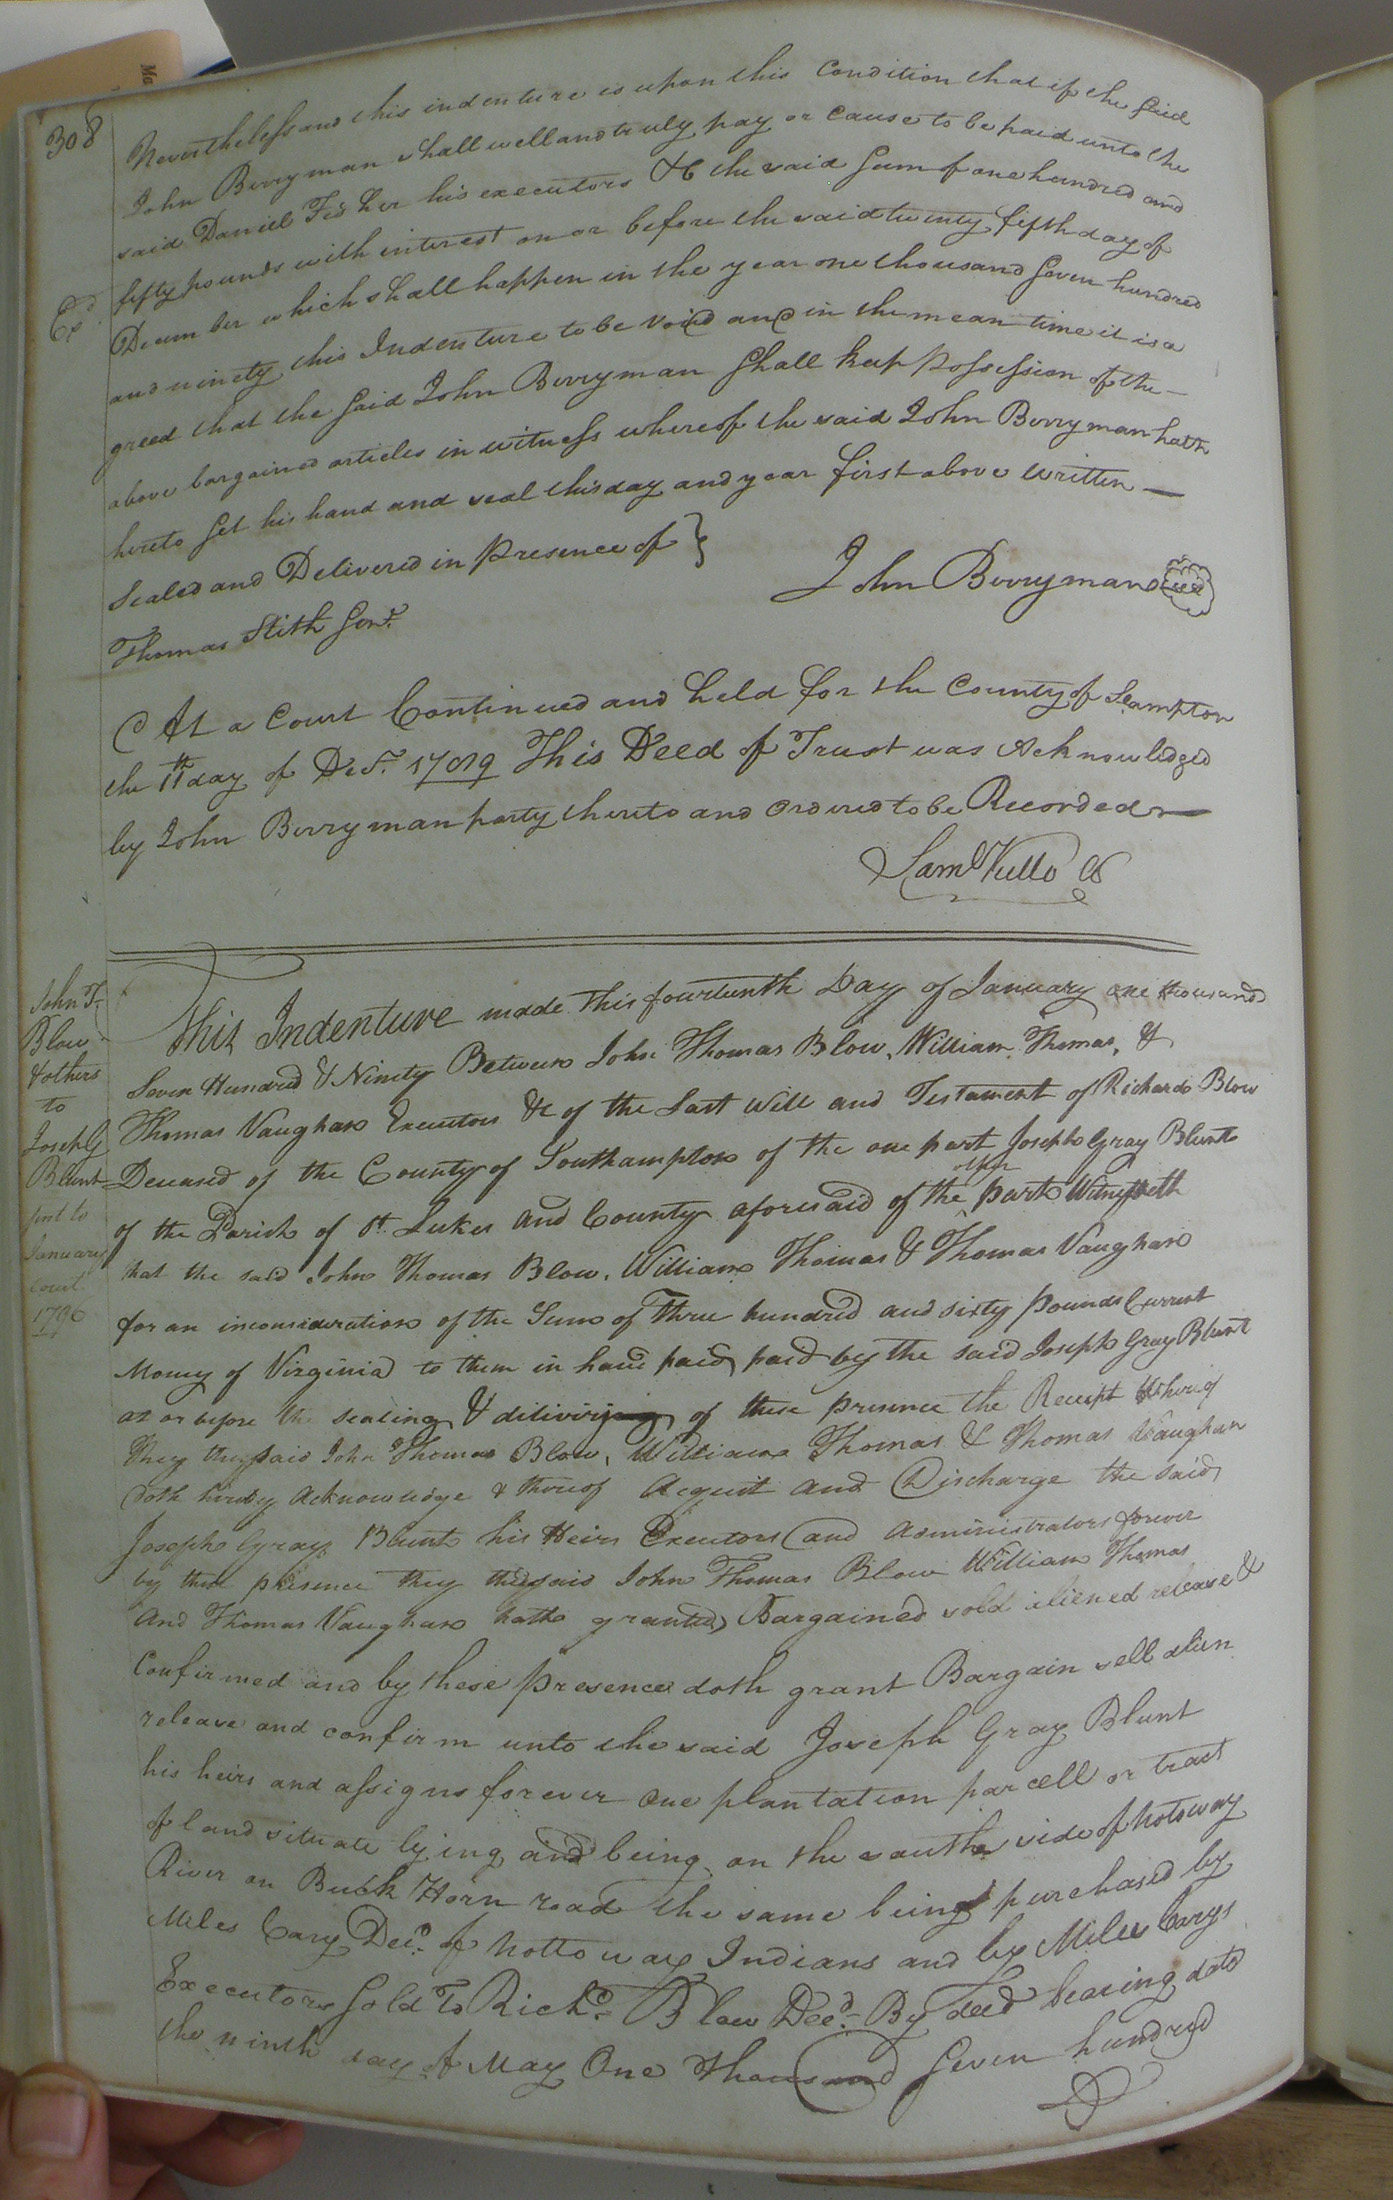 308
Nevertheless and this indenture is upon this Condition that if the said
John Berryman shall well and truly pay or cause to be paid unto the
said Daniel Fisher his executors &c the said Sum of one hundred and
fifty pounds with interest on or before the said twenty fifth day of
Exd
December which shall happen in the year one thousand Seven hundred
and ninety this Indenture to be void and in the mean time it is a
greed that the Said John Berryman Shall keep Possession of the —
above bargained articles in witness whereof the said John Berryman hath
hereto Set his hand and seal this day and year first above written —
Sealed and Delivered in Presence of }
John Berryman seal
Thomas Stith Senr.
At a Court Continued and held for the County of Sampton
the 11th day of Decr. 1789 This Deed of Trust was Acknowledged
by John Berryman party thereto and ordered to be Recorded —
Saml Kello CS
John T.
Blow
& others
to
Joseph G
Blunt
sent to
January
Court
1796
This Indenture made this fourteenth Day of January one thousand
Seven Hundred & Ninety Between John Thomas Blow, William Thomas, &
Thomas Vaughan Executors &c of the Last Will and Testament of Richard Blow
Deceased of the County of Southampton of the one part Joseph Gray Blunt
of the Parish of St. Lukes and County aforesaid of the other part Witnesseth
that the said John Thomas Blow, William Thomas & Thomas Vaughan
for an inconsideration of the Sum of Three hundred and sixty Pounds Current
Money of Virginia to them in hand paid paid by the said Joseph Gray Blunt
at or before the sealing & delivering of these presence the Receipt Whereof
they they said John Thomas Blow, William Thomas & Thomas Vaughan
doth hereby Acknowledge & thereof Acquit and Discharge the said
Joseph Gray Blunt his Heirs Executors and Administrators forever
by these presence they they said John Thomas Blow William Thomas
And Thomas Vaughan hath granted, Bargained sold aliened release &
Confirmed and by these presence doth grant Bargain sell alien
release and confirm unto the said Joseph Gray Blunt
his heirs and assigns forever one plantation parcell or tract
of land situate lying and being on the south side of Notoway
River on Buck Horn road the same being purchased by
Miles Cary Decd. of Nottoway Indians and by Miles Carys
Executors Sold To Richd. Blow Decd. By deed bearing date
the ninth day of May One Thousand Seven hundred